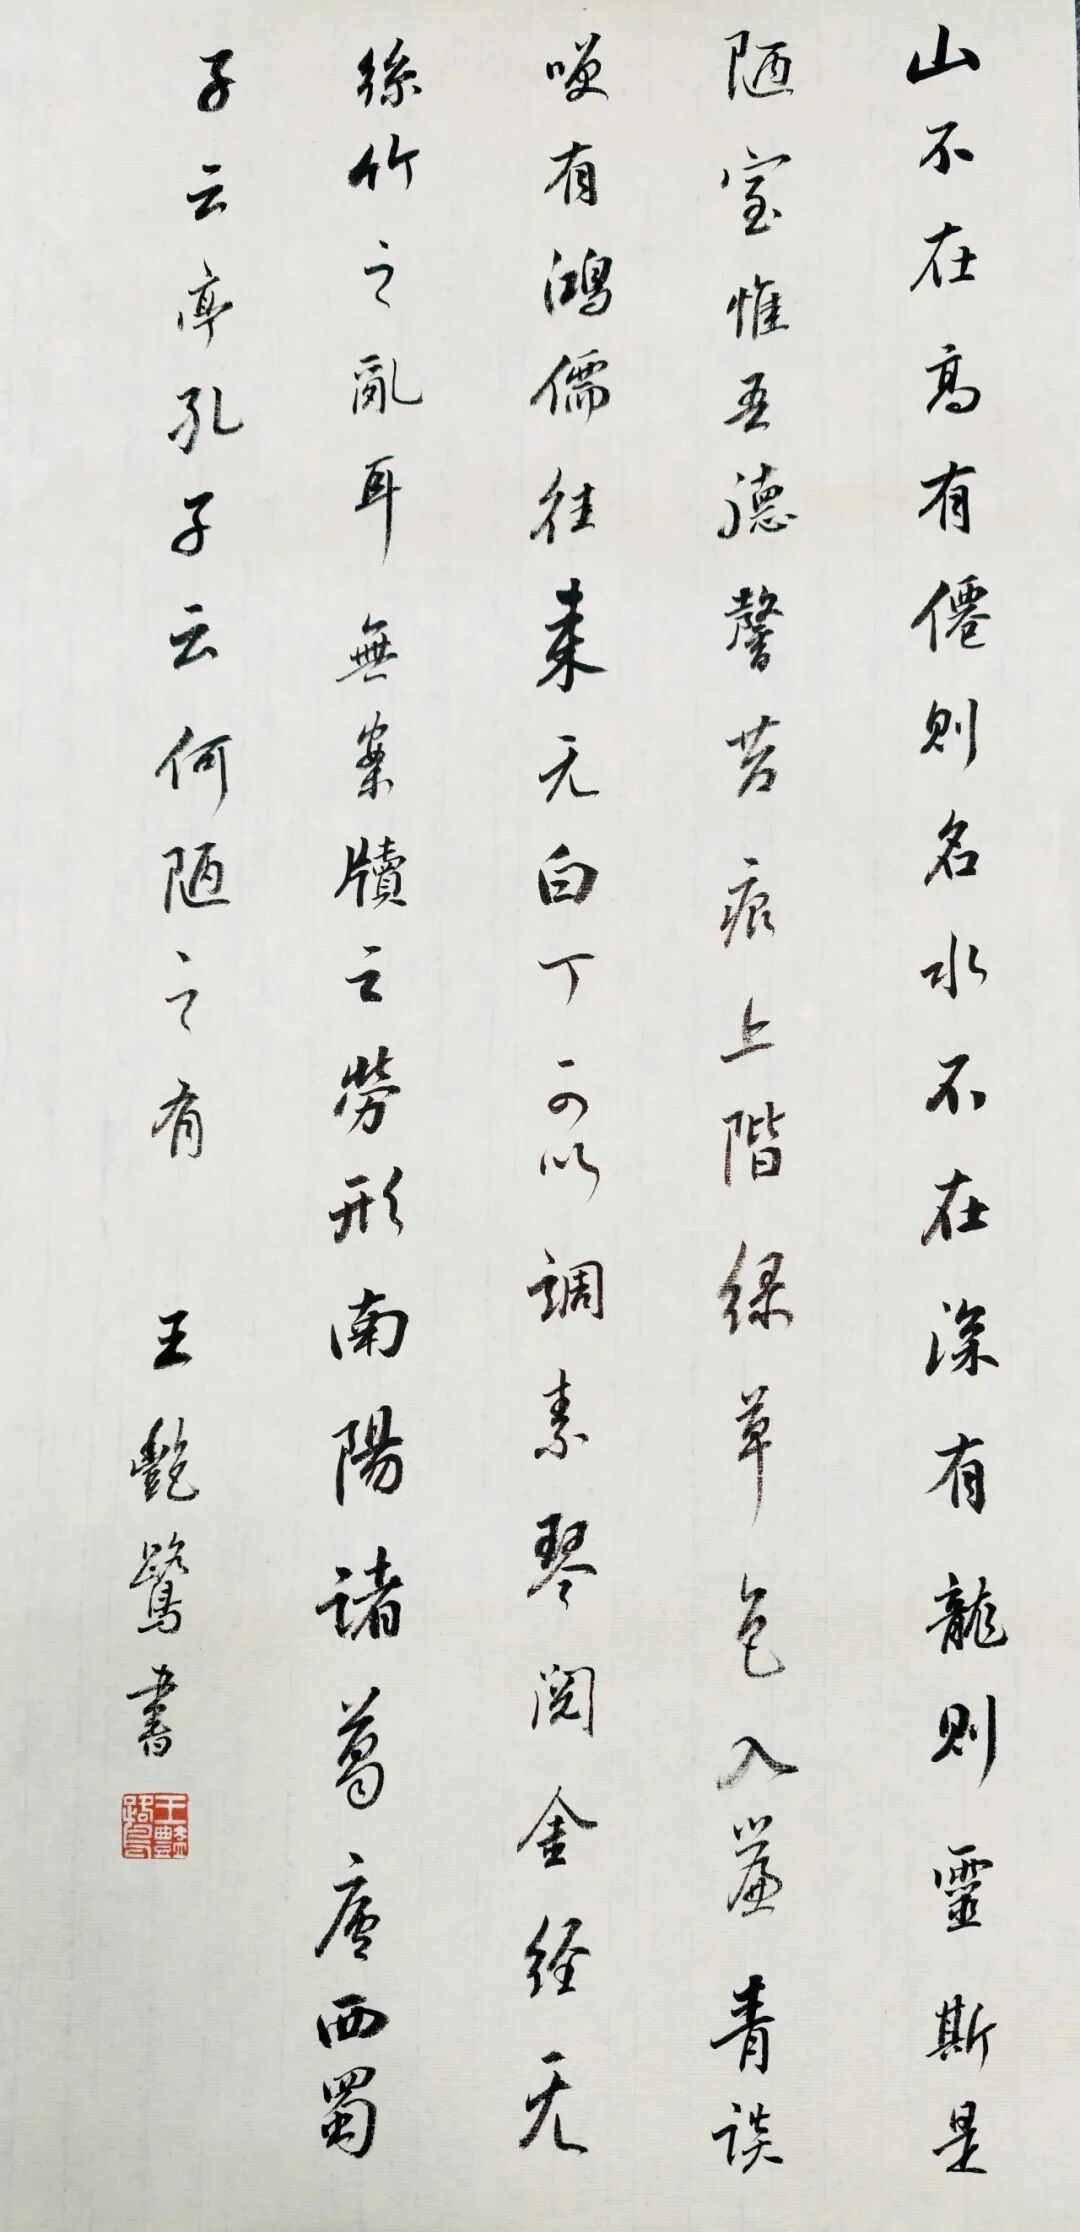 山不在高有僊則名水不在深有龍則靈斯是
陋室惟吾德馨苔痕上階绿草色入簾青谈
咲有鴻儒往来无白丁可以調素琴阅金经无
絲竹之亂耳無案牘之勞形南陽諸葛廬西蜀
子云亭孔子云何陋之有
王艷鷺書
王艷鷺